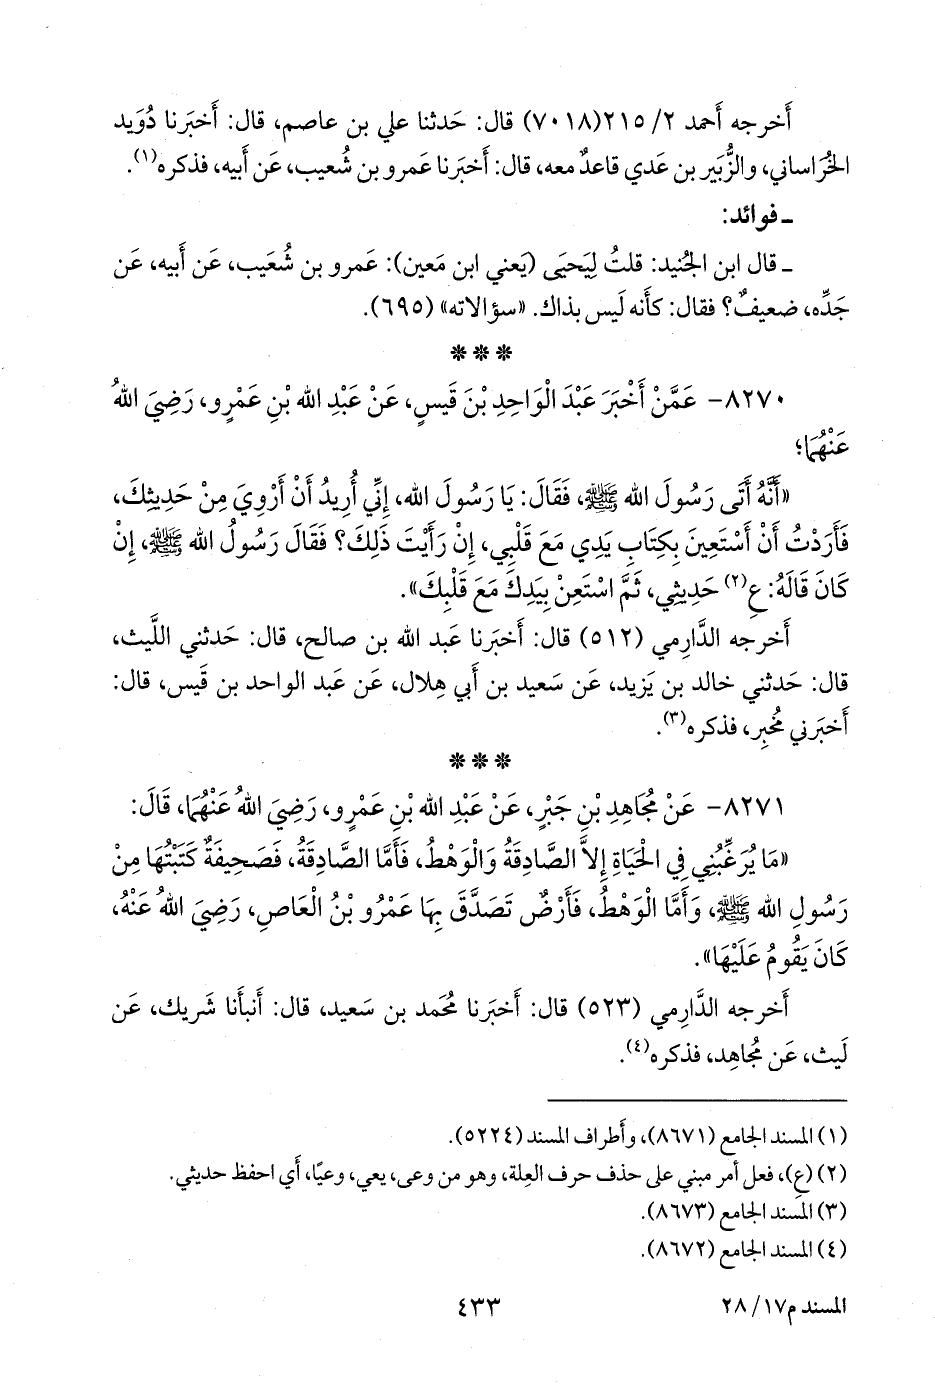 أَخرجه أَحمد ٢/ ٢١٥(٧٠١٨) قال: حَدثنا علي بن عاصم، قال: أَخبَرنا دُوَيد
الخُراساني، والزُّبَير بن عَدي قاعدٌ معه، قال: أَخبَرنا عَمرو بن شُعيب، عَن أَبيه، فذكره(١).
ـ فوائد:
ـ قال ابن الجُنيد: قلتُ لِيَحيَى (يَعني ابن مَعين): عَمرو بن شُعَيب، عَن أَبيه، عَن
جَدِّه، ضعيفٌ؟ فقال: كأَنه لَيس بذاك. «سؤالاته» (٦٩٥).
***
٨٢٧٠- عَمَّنْ أَخْبَرَ عَبْدَ الْوَاحِدِ بْنَ قَيسٍ، عَنْ عَبْدِ الله بْنِ عَمْرٍو، رَضِيَ اللهُ
عَنْهُمَا؛
«أَنَّهُ أَتَى رَسُولَ الله ﷺ، فَقَالَ: يَا رَسُولَ الله، إِنِّي أُرِيدُ أَنْ أَرْوِيَ مِنْ حَدِيثِكَ،
فَأَرَدْتُ أَنْ أَسْتَعِينَ بِكِتَابِ يَدِي مَعَ قَلْبِي، إِنْ رَأَيْتَ ذَلِكَ؟ فَقَالَ رَسُولُ الله ﷺ، إِنْ
كَانَ قَالَهُ: عِ(٢) حَدِيثِي، ثَمَّ اسْتَعِنْ بِيَدِكَ مَعَ قَلْبِكَ».
أَخرجه الدَّارِمي (٥١٢) قال: أَخبَرنا عَبد الله بن صالح، قال: حَدثني اللَّيث،
قال: حَدثني خالد بن يَزيد، عَن سَعيد بن أَبي هِلال، عَن عَبد الواحد بن قَيس، قال:
أَخبَرني مُخبِر، فذكره(٣).
***
٨٢٧١- عَنْ مُجَاهِدِ بْنِ جَبْرٍ، عَنْ عَبْدِ الله بْنِ عَمْرٍو، رَضِيَ اللهُ عَنْهُمَا، قَالَ:
«مَا يُرَغِّبُنِي فِي الْحَيَاةِ إِلاَّ الصَّادِقَةُ وَالْوَهْطُ، فَأَمَّا الصَّادِقَةُ، فَصَحِيفَةٌ كَتَبْتُهَا مِنْ
رَسُولِ الله ﷺ، وَأَمَّا الْوَهْطُ، فَأَرْضٌ تَصَدَّقَ بِهَا عَمْرُو بْنُ الْعَاصِ، رَضِيَ اللهُ عَنْهُ،
كَانَ يَقُومُ عَلَيْهَا».
أَخرجه الدَّارِمي (٥٢٣) قال: أَخبَرنا مُحمد بن سَعيد، قال: أَنبأَنا شَريك، عَن
لَيث، عَن مُجاهد، فذكره(٤).
(١) المسند الجامع (٨٦٧١)، وأَطراف المسند (٥٢٢٤).
(٢) (عِ)، فعل أمر مبني على حذف حرف العِلة، وهو من وعى، يعي، وعيًا، أَي احفظ حديثي.
(٣) المسند الجامع (٨٦٧٣).
(٤) المسند الجامع (٨٦٧٢).
المسند م١٧/ ٢٨
٤٣٣